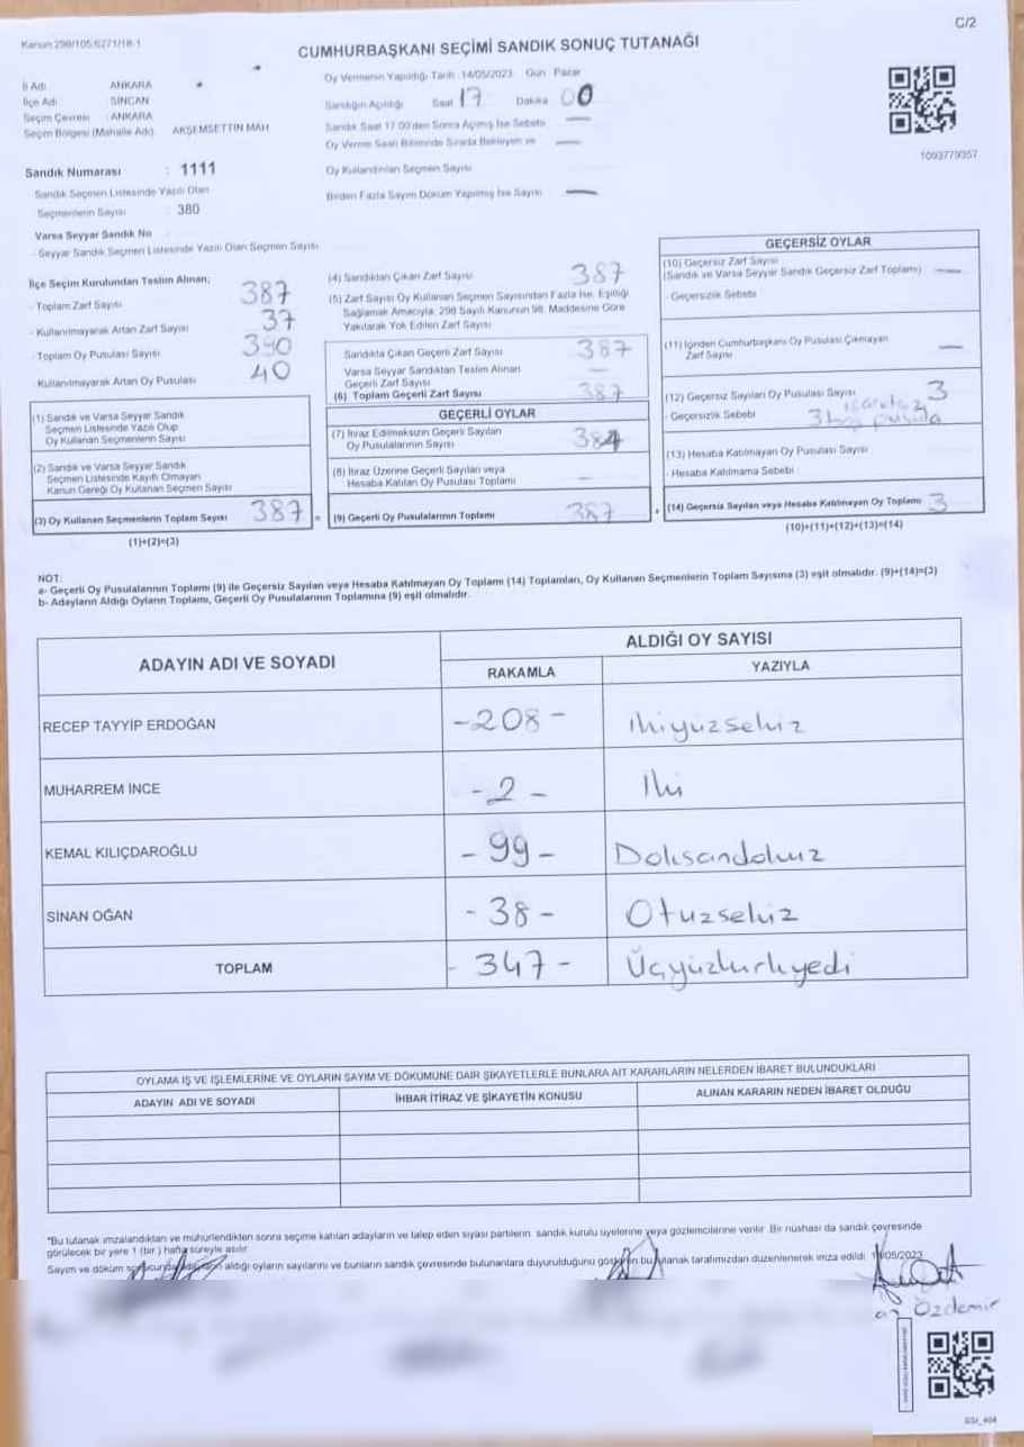 C/2
Kanun 298/105;6271/18-1
CUMHURBAŞKANI SEÇİMİ SANDIK SONUÇ TUTANAĞI
İl Adı : ANKARA
İlçe Adı : SİNCAN
Seçim Çevresi : ANKARA
Seçim Bölgesi (Mahalle Adı) : AKŞEMSETTİN MAH
Oy Vermenin Yapıldığı Tarih :14/05/2023 Gün : Pazar
Sandığın Açıldığı Saat 17 Dakika 00
Sandık Saat 17:00'den Sonra Açılmış İse Sebebi —
Oy Verme Saati Bitiminde Sırada Bekleyen ve —
Oy Kullandırılan Seçmen Sayısı
Birden Fazla Sayım Döküm Yapılmış İse Sayısı —
1093779357
Sandık Numarası : 1111
Sandık Seçmen Listesinde Yazılı Olan
Seçmenlerin Sayısı : 380
Varsa Seyyar Sandık No
- Seyyar Sandık Seçmen Listesinde Yazılı Olan Seçmen Sayısı
İlçe Seçim Kurulundan Teslim Alınan;
- Toplam Zarf Sayısı 387
- Kullanılmayarak Artan Zarf Sayısı 37
- Toplam Oy Pusulası Sayısı 390
Kullanılmayarak Artan Oy Pusulası 40
(1) Sandık ve Varsa Seyyar Sandık
Seçmen Listesinde Yazılı Olup
Oy Kullanan Seçmenlerin Sayısı
(2) Sandık ve Varsa Seyyar Sandık
Seçmen Listesinde Kayıtlı Olmayan
Kanun Gereği Oy Kullanan Seçmen Sayısı
(3) Oy Kullanan Seçmenlerin Toplam Sayısı 387 =
(1)+(2)=(3)
(4) Sandıktan Çıkan Zarf Sayısı 387
(5) Zarf Sayısı Oy Kullanan Seçmen Sayısından Fazla İse, Eşitliği
Sağlamak Amacıyla, 298 Sayılı Kanunun 98. Maddesine Göre
Yakılarak Yok Edilen Zarf Sayısı
Sandıkta Çıkan Geçerli Zarf Sayısı 387
Varsa Seyyar Sandıktan Teslim Alınan
Geçerli Zarf Sayısı —
(6) Toplam Geçerli Zarf Sayısı 387
GEÇERLİ OYLAR
(7) İtiraz Edilmeksizin Geçerli Sayılan
Oy Pusulalarının Sayısı 384
(8) İtiraz Üzerine Geçerli Sayılan veya
Hesaba Katılan Oy Pusulası Toplamı —
(9) Geçerli Oy Pusulalarının Toplamı 387 +
GEÇERSİZ OYLAR
(10) Geçersiz Zarf Sayısı
(Sandık ve Varsa Seyyar Sandık Geçersiz Zarf Toplamı) —
- Geçersizlik Sebebi
(11) İçinden Cumhurbaşkanı Oy Pusulası Çıkmayan
Zarf Sayısı —
(12) Geçersiz Sayılan Oy Pusulası Sayısı 3
- Geçersizlik Sebebi 3 pusula
(13) Hesaba Katılmayan Oy Pusulası Sayısı
- Hesaba Katılmama Sebebi
(14) Geçersiz Sayılan veya Hesaba Katılmayan Oy Toplamı 3
(10)+(11)+(12)+(13)=(14)
NOT:
a- Geçerli Oy Pusulalarının Toplamı (9) ile Geçersiz Sayılan veya Hesaba Katılmayan Oy Toplamı (14) Toplamları, Oy Kullanan Seçmenlerin Toplam Sayısına (3) eşit olmalıdır. (9)+(14)=(3)
b- Adayların Aldığı Oyların Toplamı, Geçerli Oy Pusulalarının Toplamına (9) eşit olmalıdır.
ADAYIN ADI VE SOYADI
ALDIĞI OY SAYISI
RAKAMLA YAZIYLA
RECEP TAYYİP ERDOĞAN -208- İkiyüzsekiz
MUHARREM İNCE -2- İki
KEMAL KILIÇDAROĞLU -99- Doksandokuz
SİNAN OĞAN -38- Otuzsekiz
TOPLAM -347- Üçyüzkırkyedi
OYLAMA İŞ VE İŞLEMLERİNE VE OYLARIN SAYIM VE DÖKÜMÜNE DAİR ŞİKAYETLERLE BUNLARA AİT KARARLARIN NELERDEN İBARET BULUNDUKLARI
ADAYIN ADI VE SOYADI İHBAR İTİRAZ VE ŞİKAYETİN KONUSU ALINAN KARARIN NEDEN İBARET OLDUĞU
*Bu tutanak imzalandıktan ve mühürlendikten sonra seçime katılan adayların ve talep eden siyasi partilerin sandık kurulu üyelerine veya gözlemcilerine verilir. Bir nüshası da sandık çevresinde
görülecek bir yere 1 (bir) hafta süreyle asılır.
Sayım ve döküm aldığı oyların sayılarını ve bunların sandık çevresinde bulunanlara duyurulduğunu bu tutanak tarafımızdan düzenlenerek imza edildi. /05/2023
Özdemir